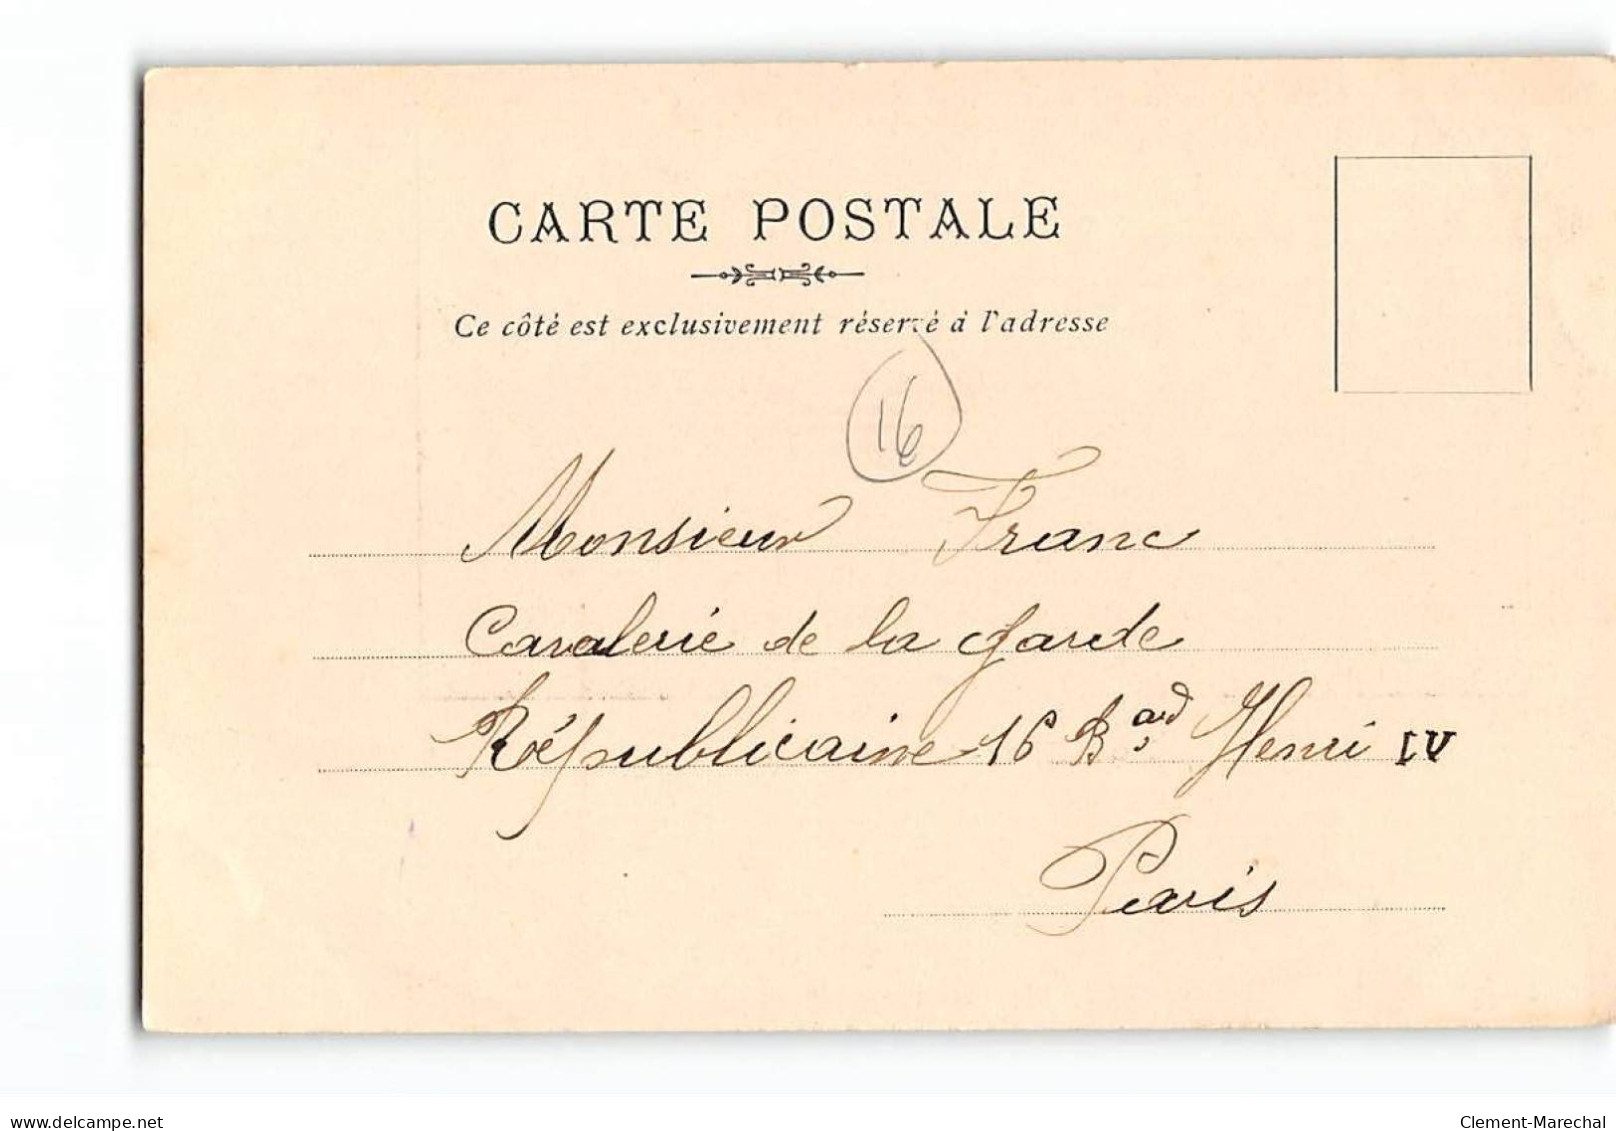 CARTE POSTALE
Ce côté est exclusivement réservé à l'adresse
16
Monsieur Franc
Cavalerie de la Garde
Républicaine 16 Bard Henri IV
Paris
www.delcampe.net
Clement-Marechal